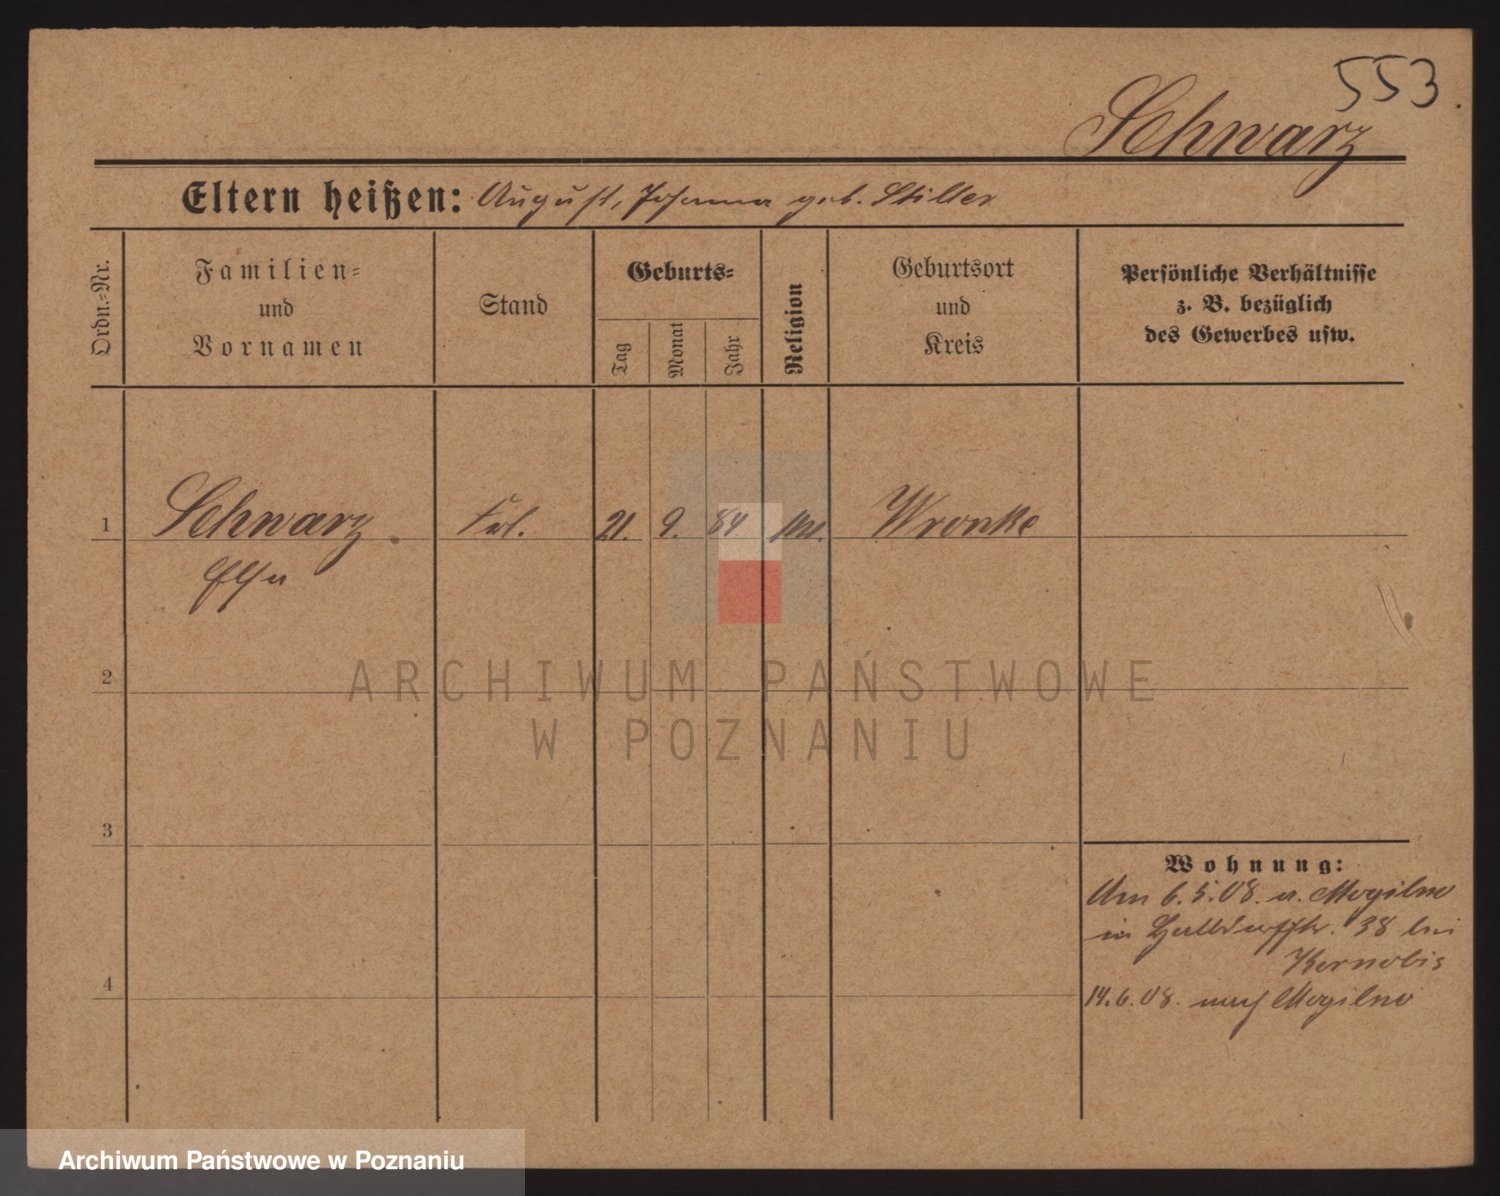 553.
Schwarz
Eltern heißen: August, Johanna geb. Stiller
Ordn.=Nr.
Familien=
und
Vornamen
Stand
Geburts=
Tag
Monat
Jahr
Religion
Geburtsort
und
Kreis
Persönliche Verhältnisse
z. B. bezüglich
des Gewerbes usw.
1 Schwarz. Frl. 21. 9. 84 Wronke
Else
2
ARCHIWUM PAŃSTWOWE
W POZNANIU
3
4
Wohnung:
6.5.08. a. Mogilno
in 38 bei
14.6.08. nach Mogilno
Archiwum Państwowe w Poznaniu